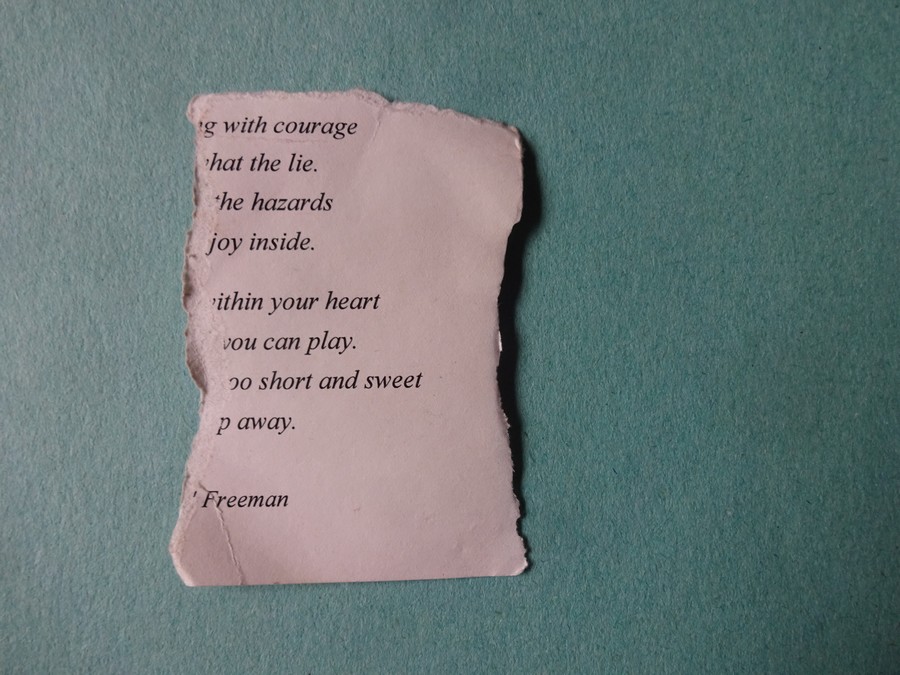 with courage
the lie.
the hazards
joy inside.
your heart
you can play.
short and sweet
away.
Freeman